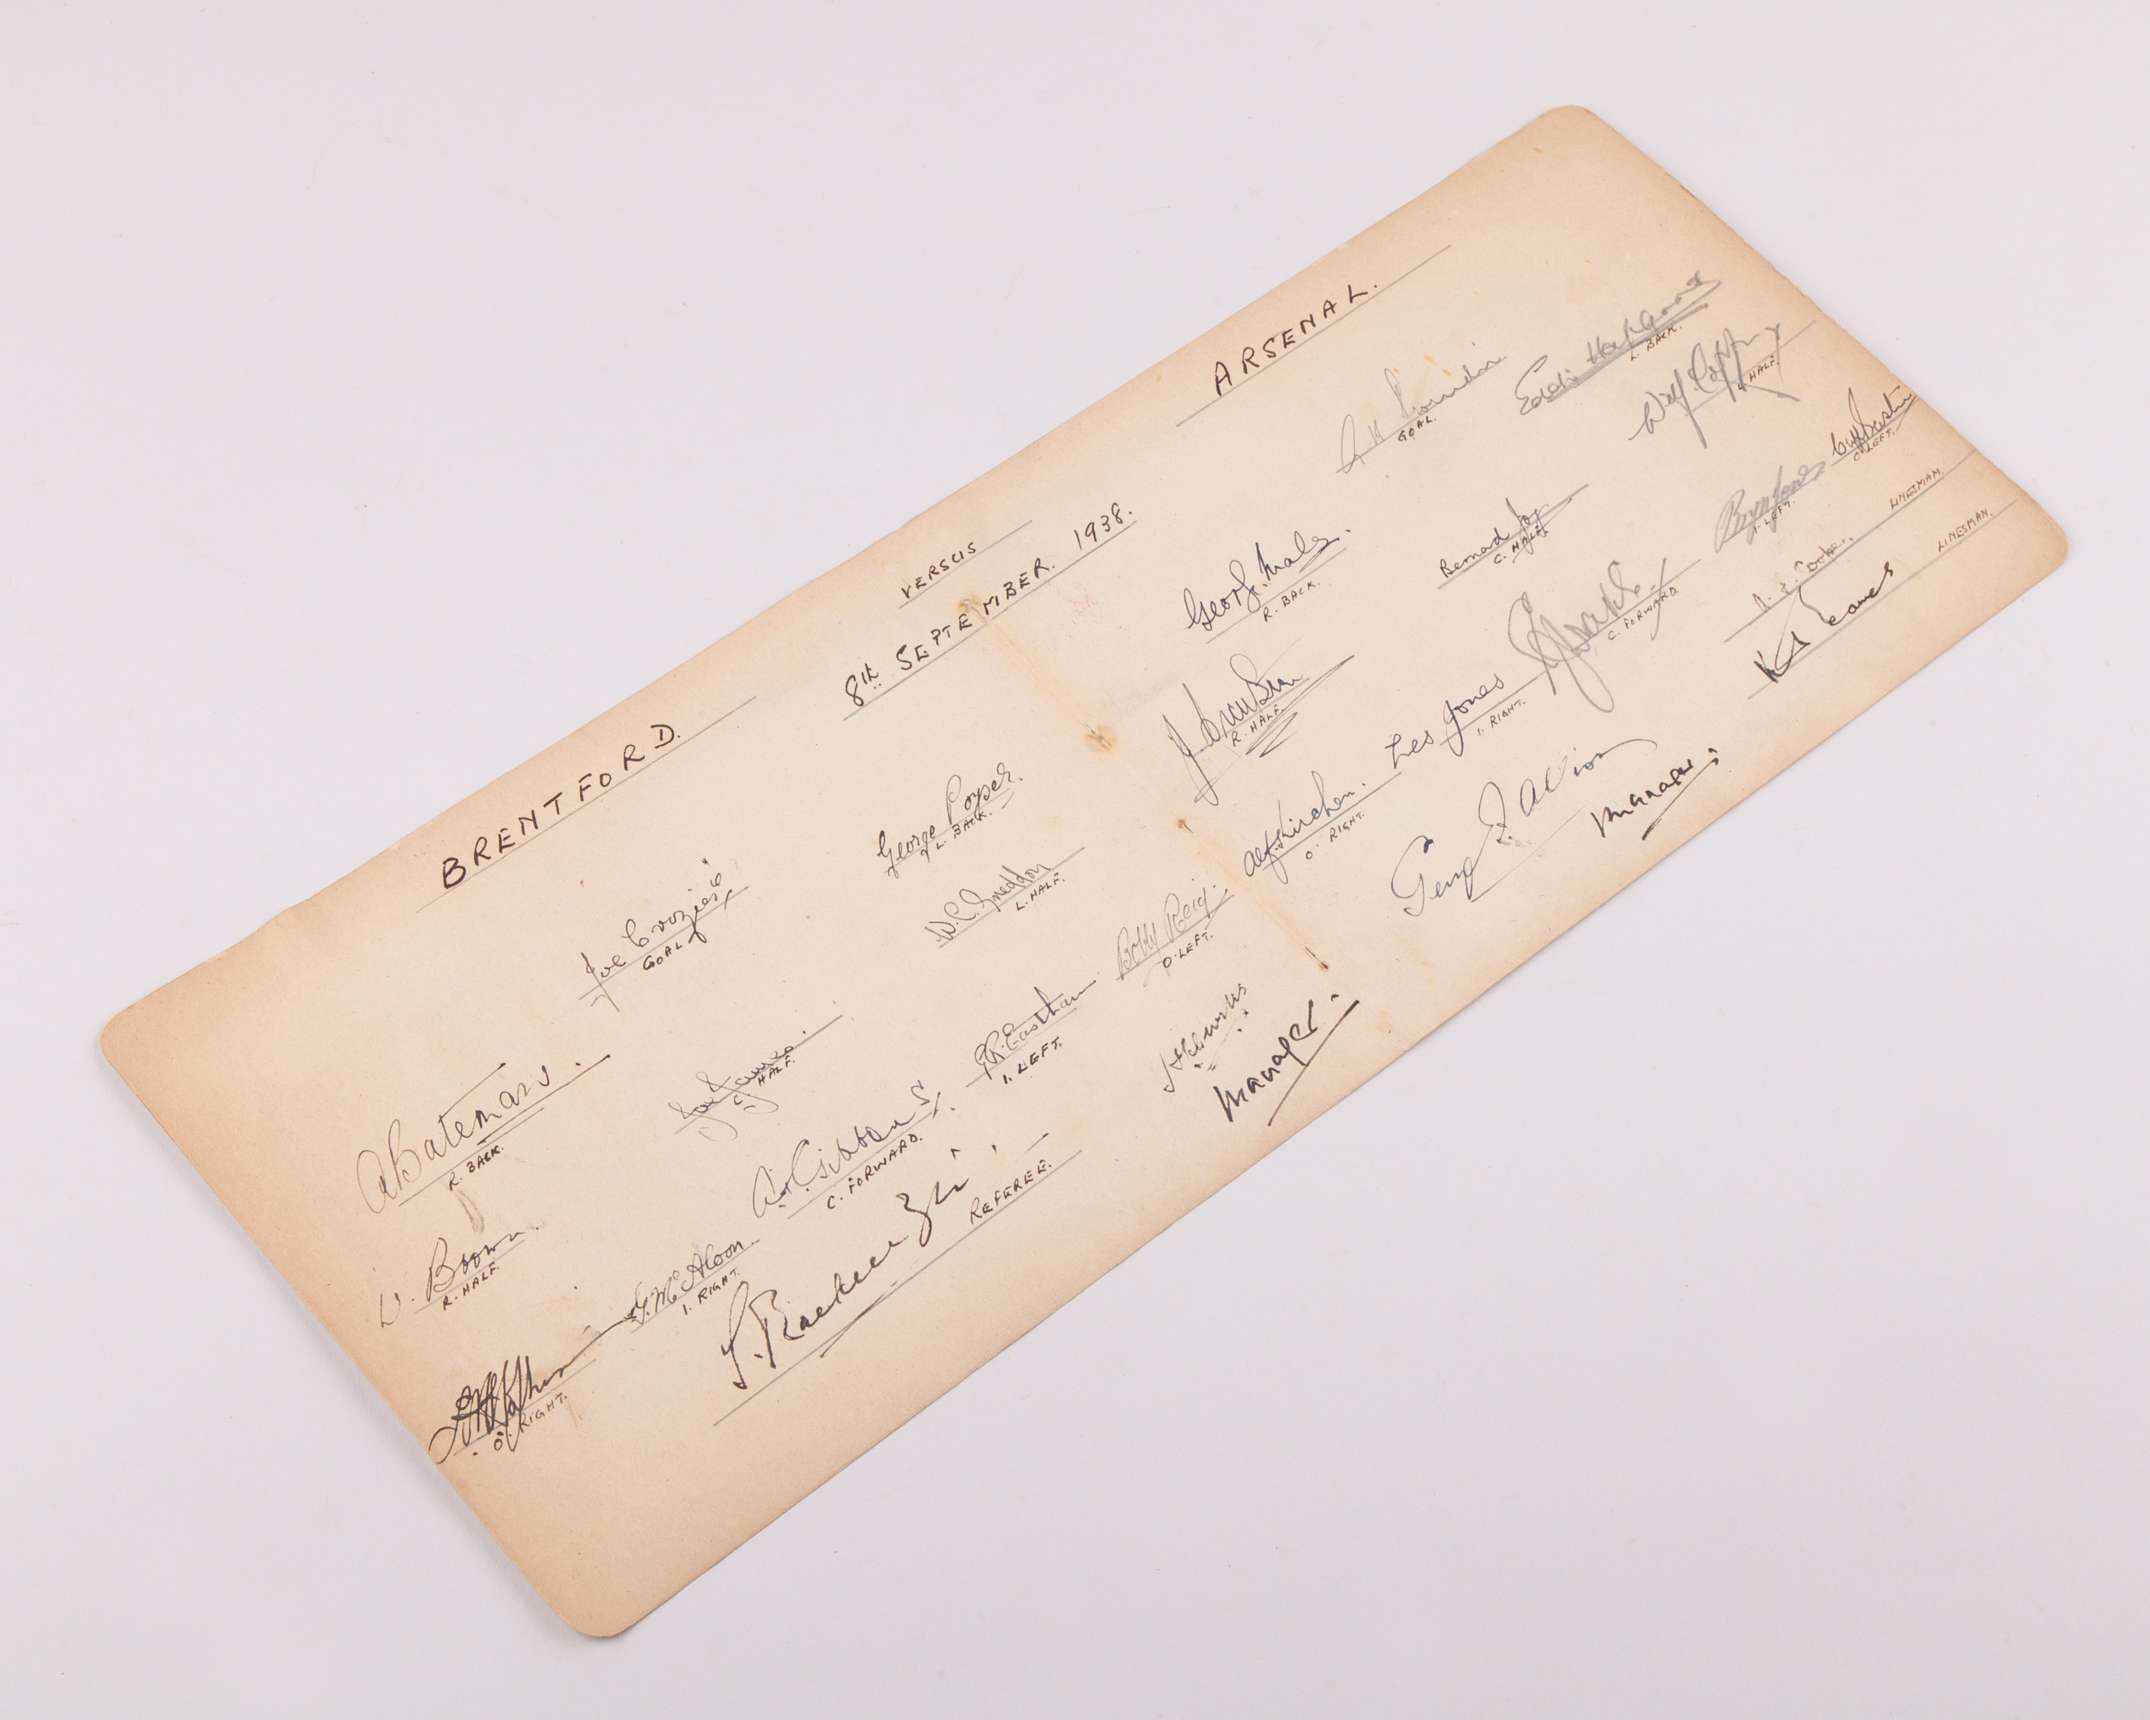 BRENTFORD.
VERSUS
ARSENAL.
8th SEPTEMBER. 1938.
Joe Crozier
GOAL
A Bateman.
R. BACK.
George Poyser.
L. BACK.
W. Brown.
R. HALF.
Joe James.
C. HALF.
W. C. Sneddon
L. HALF.
O. RIGHT.
G. McAloon
I. RIGHT.
C. Gibbons
C. FORWARD.
R. Eastham
I. LEFT.
Bobby Reid.
O. LEFT.
REFEREE.
Manager.
GOAL.
George Male.
R. BACK.
Eddie Hapgood
L. BACK.
R. HALF.
Bernard Joy
C. HALF.
Wilf Copping
L. HALF.
Alf Kirchen.
O. RIGHT.
Les Jones
I. RIGHT.
E J Drake
C. FORWARD.
Bryn Jones
I. LEFT.
Cliff Bastin
O. LEFT.
George F. Allison
Manager.
LINESMAN.
LINESMAN.